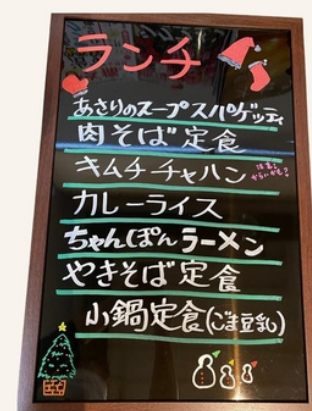 ランチ
あさりのスープスパゲッティ
肉そば定食
キムチチャハン
カレーライス
ちゃんぽんラーメン
やきそば定食
小鍋定食(ごま豆乳)